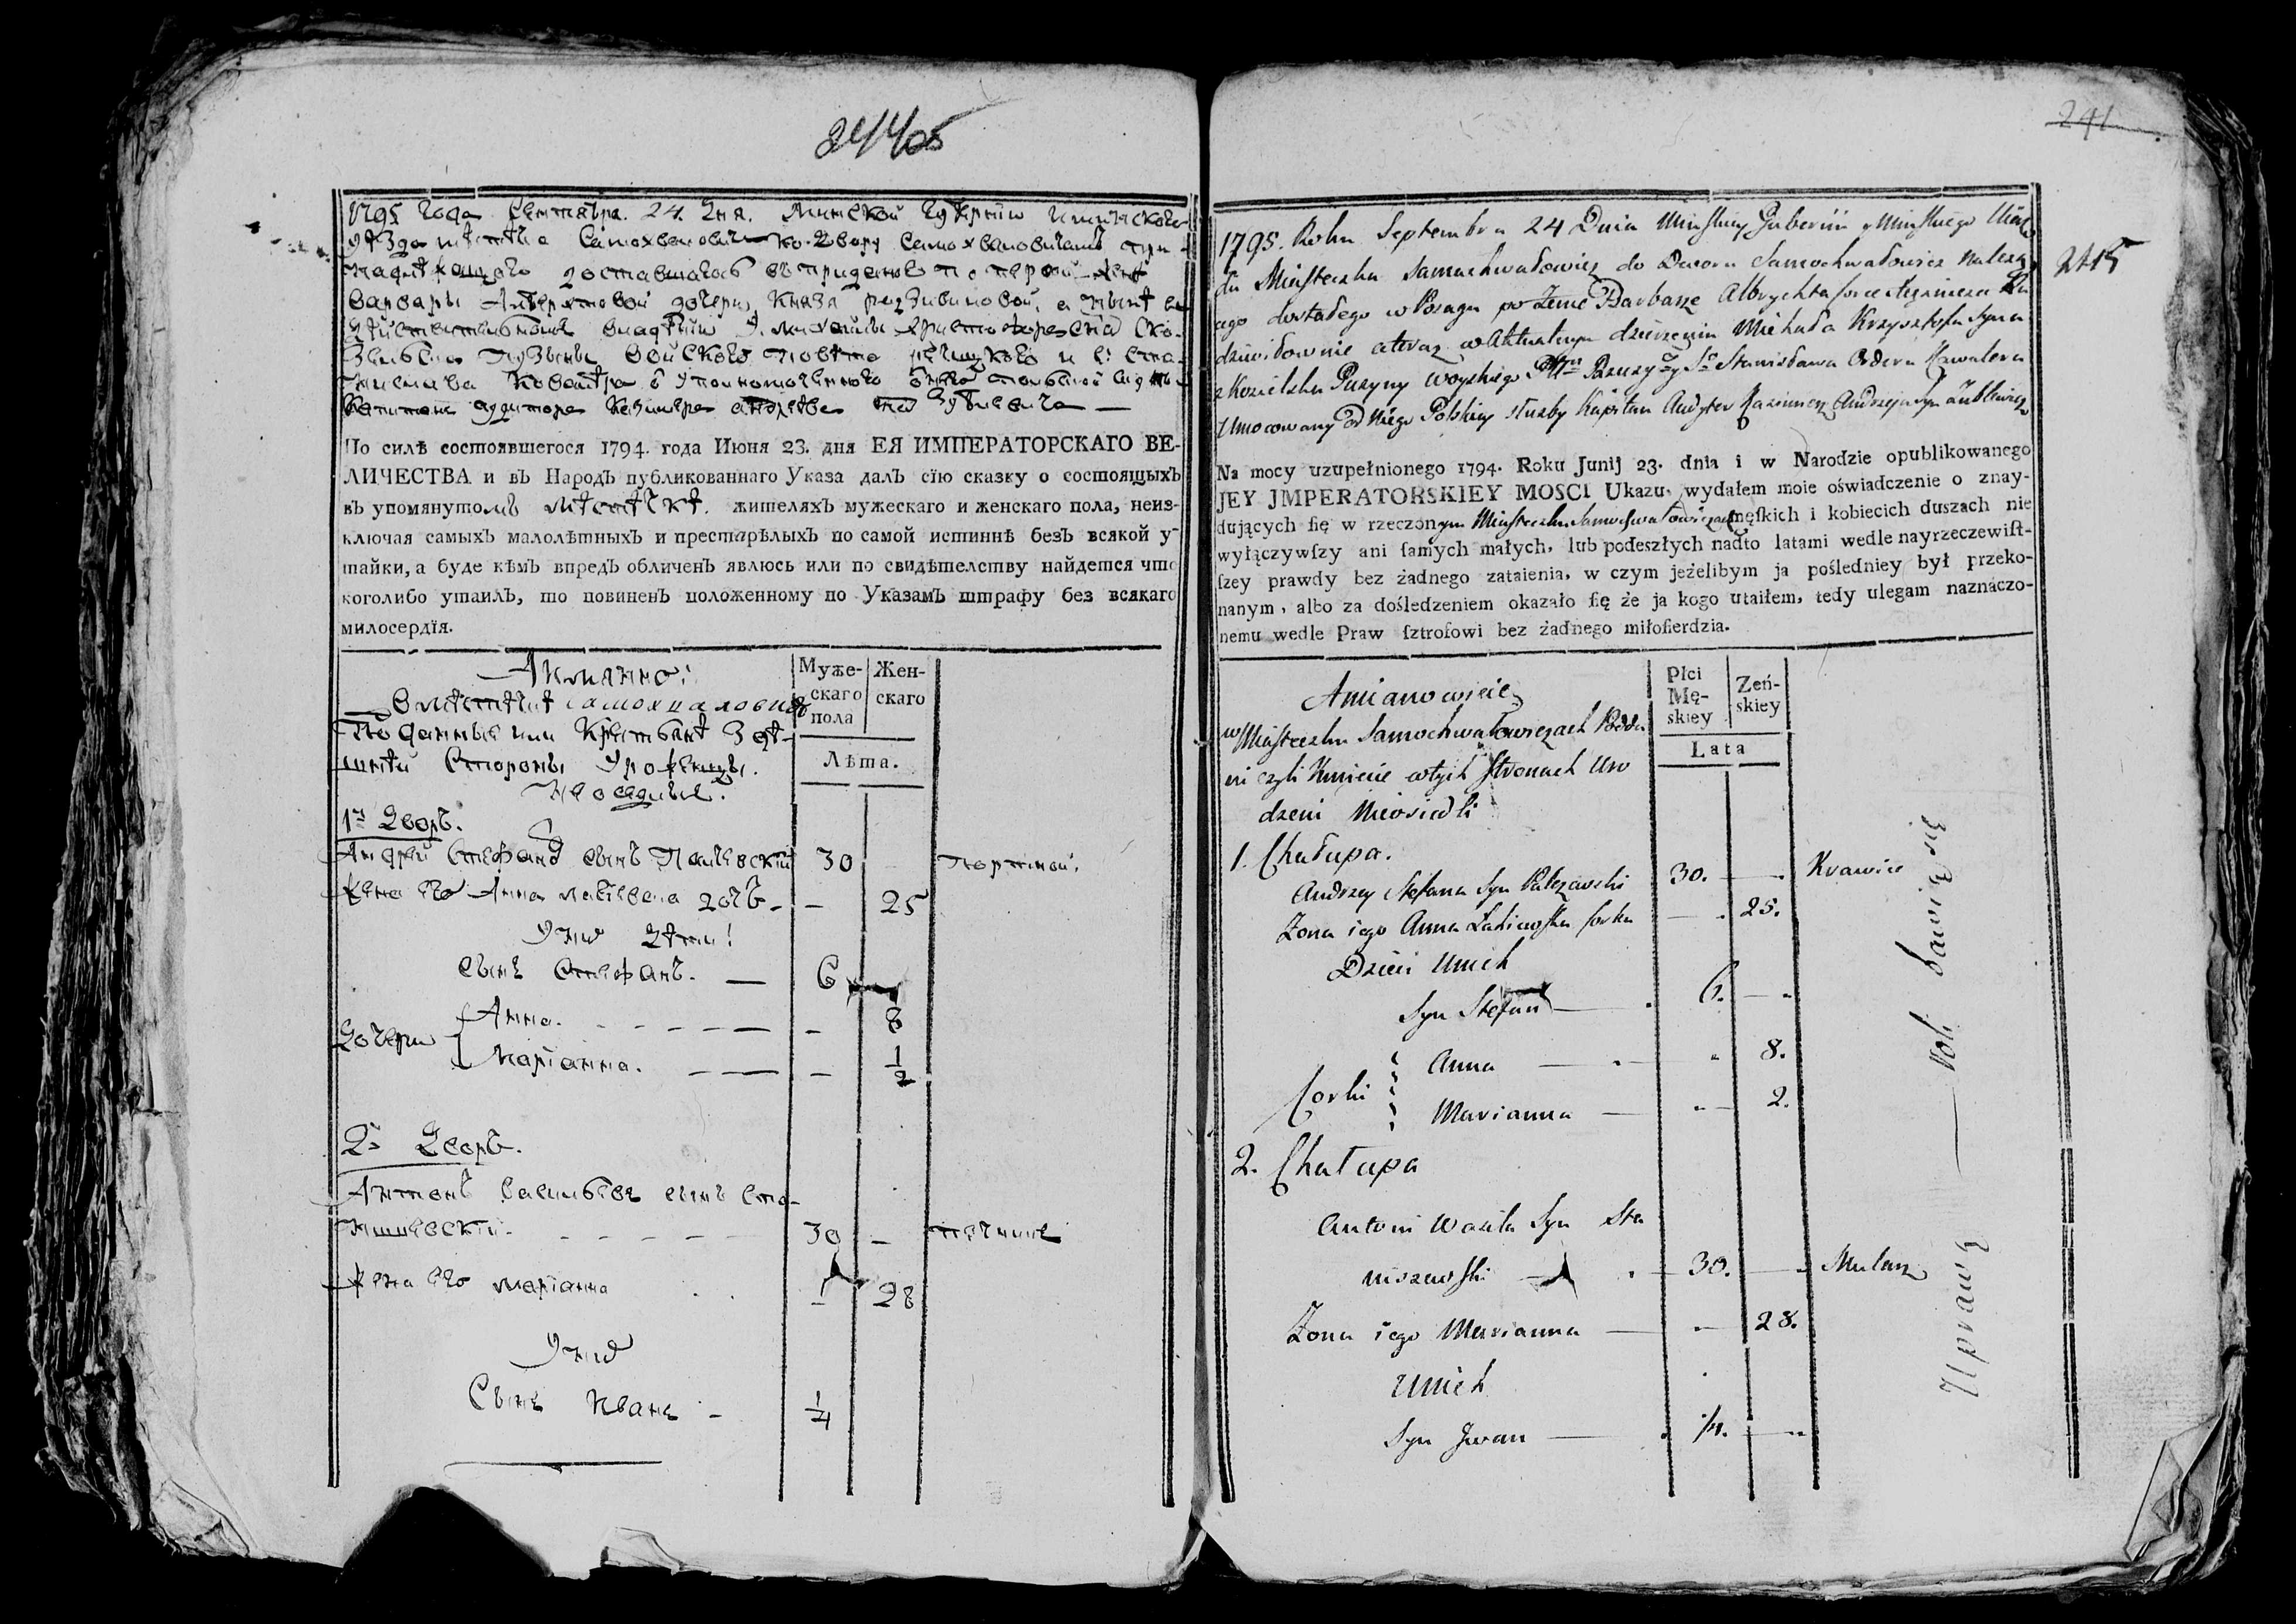 24405
1795 года Сентября. 24. дня. Минской Губернїи Минского
уезда местечка Самохваловичъ ко двору Самохваловичамъ при-
надлежащаго доставшагось въ приданое по первой жене
Варвары Албрехтовой дочери, Князя Радзивиловой, а ныне въ
действительномъ владенїи Михайлы Христофорова сына
Пузыны Войскаго повета Речицкаго и С: Ста-
нислава Кавалера Уполномоченного польской службы
Капитанъ аудиторъ Казимеръ Андреевъ сынъ Зублевича —
По силѣ состоявшегося 1794. года Июня 23. дня ЕЯ ИМПЕРАТОРСКАГО ВЕ-
ЛИЧЕСТВА и въ Народъ публикованнаго Указа далъ сїю сказку о состоящыхъ
въ упомянутомъ местечке. жителяхъ мужескаго и женскаго пола, неиз-
ключая самыхъ малолѣтныхъ и престарѣлыхъ по самой истиннѣ безъ всякой у-
тайки, а буде кѣмъ впредъ обличенъ явлюсь или по свидѣтелству найдется что
коголибо утаилъ, то повиненъ положенному по Указамъ штрафу без всякаго
милосердїя.
Имянно:
Муже-
скаго
пола
Жен-
скаго
Лѣта.
В местечке Самохваловичахъ
Подданные или Крестьяне Зде-
шней Стороны Уроженцы.
Неоседлые.
1й Дворъ.
Андрей Стефановъ сынъ Палчевскїй 30 — портной.
Жена его Анна дочь — — 25
У нихъ дети:
сынъ Стефанъ. — 6
Дочери Анна. — — 8
Марїанна. — — 1/2
2й Дворъ.
Антонъ Васильевъ сынъ Ста-
нишевскїй — 30 — печникъ
Жена его Марїанна — 28
У нихъ
Сынъ Иванъ — 1/4
241
2415
1795. Roku Septembra 24 Dnia Minskiey Gubernii Minskiego Uiaz
du Miasteczka Samochwałowicz do Dworu Samochwałowicz należą
cego dostałego w Posagu po Żenie Barbarze Albrychta corce Xiężnicza Ra
dziwiłownie a teraz w Aktualnym dzierżeniu Michała Krzysztofa Syna
z Kozielska Puzyny Woyskiego Pttu Rzeczy: y S: Stanisława Orderu Kawalera
Umocowany od Niego Polskiey służby Kapitan Audytor Kazimierz Andrzeja Syn Zublewicz
Na mocy uzupełnionego 1794. Roku Junij 23. dnia i w Narodzie opublikowanego
JEY JMPERATORSKIEY MOSCI Ukazu, wydałem moie oświadczenie o znay-
dujących ſię w rzeczonym Miasteczku Samochwałowiczach męſkich i kobiecich duszach nie
wyłączywſzy ani ſamych małych, lub podeszłych nadto latami wedle nayrzeczewiſt-
ſzey prawdy bez żadnego zataienia, w czym jeżelibym ja pośledniey był przeko-
nanym, albo za dośledzeniem okazało ſię że ja kogo utaiłem, tedy ulegam naznaczo-
nemu wedle Praw ſztrofowi bez żadnego miłoſierdzia.
Amianowicie
Płci
Mę-
skiey
Zeń-
skiey
Lata
w Miasteczku Samochwałowiczach Podda
ni czyli Kmiecie w tych Stronach Uro
dzeni Nieosiedli
1. Chałupa.
Andrzey Stefana Syn Palczewski 30. — Krawiec
Żona iego Anna corka — 25.
Dzieci Unich
Syn Stefan — 6. —
Corki Anna — 8.
Marianna — 2.
2. Chałupa
Antoni Wasila Syn Sta
niszewski — 30. — Mularz
Żona iego Marianna — 28.
Unich
Syn Jwan — 1/4. —
Uprawą — roli bawią się